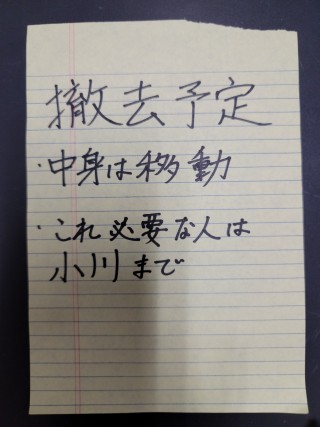 撤去予定
・中身は移動
・これ必要な人は
小川まで